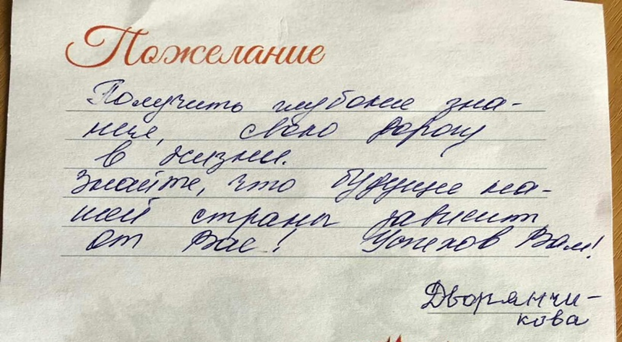 Пожелание
Получить глубокие зна-
ния, свою дорогу
в жизни.
Знайте, что будущее на-
шей страны зависит
от Вас! Успехов Вам!
Дворянчи-
кова